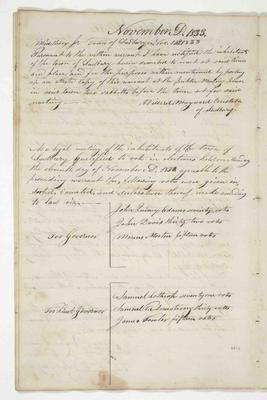 November D. 1833.
Middlesex Ss. Town of Sudbury Nov. 1833
Pursuant to the within warrant I have notified the inhabitants
of the town of Sudbury herein directed to meet at said time
and place and for the purposes within mentioned by posting
up an attested copy of this warrant at the public meeting house
in said town the sabbath before the time set for said
meeting
Willard Maynard Constable
of Sudbury
At a legal meeting of the inhabitants of the town of
Sudbury qualified to vote in elections held on Monday
the eleventh day of November D. 1833 agreeable to the
preceding warrant the following votes were given in
sorted, counted, and declaration thereof made according
to law viz.
John Quincy Adams seventy votes
John Davis thirty two votes
For Governor
Marcus Morton fifteen votes
Samuel Lothrop seventy one votes
For Lieut. Governor
Samuel T. Armstrong thirty votes
James Fowler fifteen votes